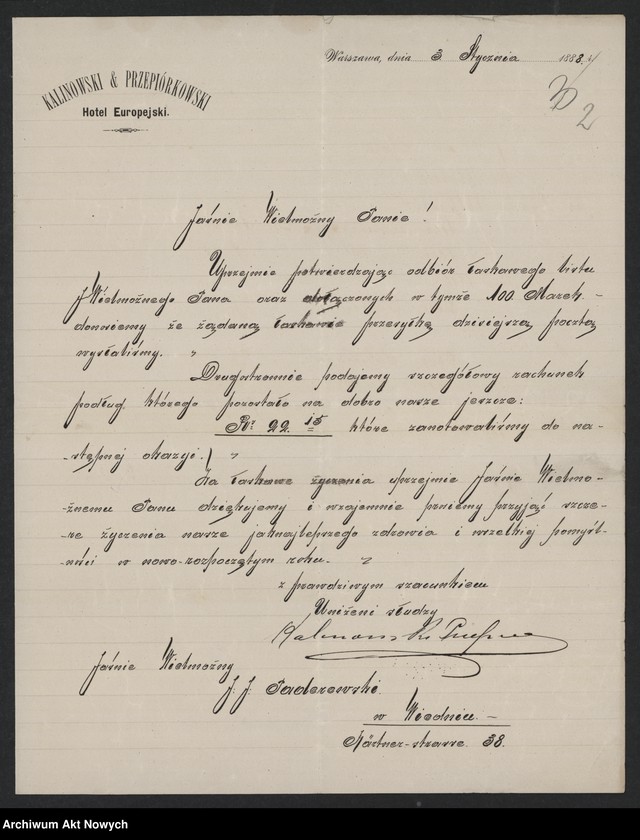 Warszawa, dnia 3. Stycznia 1888.
KALINOWSKI & PRZEPIÓRKOWSKI
Hotel Europejski.
2
Jaśnie Wielmożny Panie!
Uprzejmie potwierdzając odbiór łaskawego listu
J Wielmożnego Pana oraz dołączonych w tymże 100 Marek -
donosimy że żądaną łaskawie przesyłkę dzisiejszą pocztą
wysłaliśmy.
Drugostronnie podajemy szczegółowy rachunek
podług którego pozostało na dobro nasze jeszcze:
Rs. 22 15 które zanotowaliśmy do na-
-stępnej okazyi.
Za łaskawe życzenia uprzejmie Jaśnie Wielmo-
-żnemu Panu dziękujemy i wzajemnie prosimy przyjąć szcze-
-re życzenia nasze jaknajlepszego zdrowia i wszelkiej pomyśl-
-ności w nowo-rozpoczętym roku.
z prawdziwym szacunkiem
Uniżeni słudzy
Kalinowski Przep
Jaśnie Wielmożny
J. J. Paderewski.
w Wiedniu. -
Kärtner-strasse 38.
Archiwum Akt Nowych